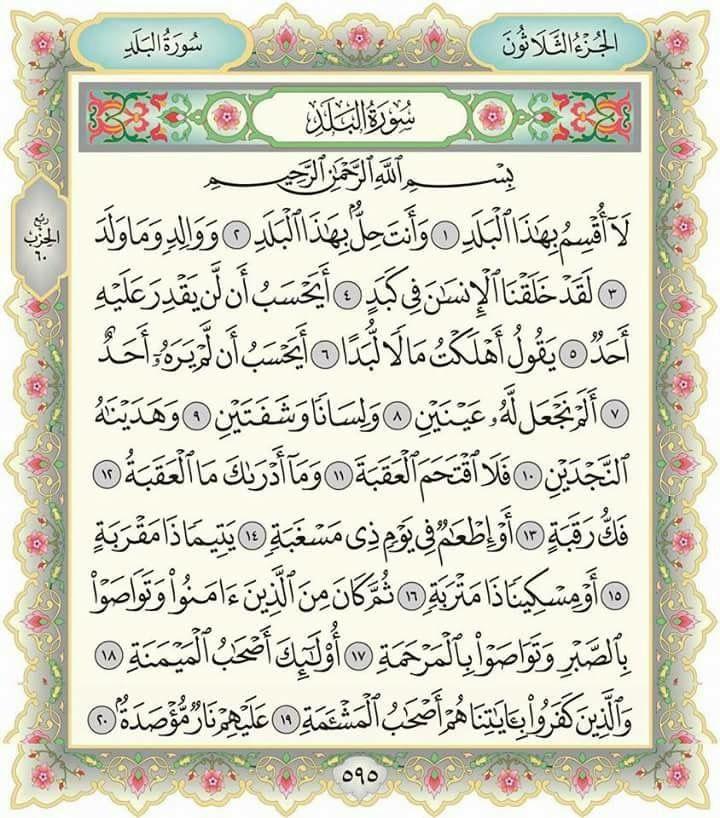 الجُزْءُ الثَّلَاثُونَ
سُورَةُ البَلَدِ
سُورَةُ البَلَدِ
بِسْمِ اللَّهِ الرَّحْمَٰنِ الرَّحِيمِ
لَآ أُقْسِمُ بِهَٰذَا الْبَلَدِ ١ وَأَنتَ حِلٌّۢ بِهَٰذَا الْبَلَدِ ٢ وَوَالِدٍ وَمَا وَلَدَ
٣ لَقَدْ خَلَقْنَا الْإِنسَٰنَ فِي كَبَدٍ ٤ أَيَحْسَبُ أَن لَّن يَقْدِرَ عَلَيْهِ
أَحَدٌ ٥ يَقُولُ أَهْلَكْتُ مَالًا لُّبَدًا ٦ أَيَحْسَبُ أَن لَّمْ يَرَهُۥٓ أَحَدٌ
٧ أَلَمْ نَجْعَل لَّهُۥ عَيْنَيْنِ ٨ وَلِسَانًا وَشَفَتَيْنِ ٩ وَهَدَيْنَٰهُ
النَّجْدَيْنِ ١٠ فَلَا اقْتَحَمَ الْعَقَبَةَ ١١ وَمَآ أَدْرَىٰكَ مَا الْعَقَبَةُ ١٢
فَكُّ رَقَبَةٍ ١٣ أَوْ إِطْعَٰمٌ فِي يَوْمٍ ذِي مَسْغَبَةٍ ١٤ يَتِيمًا ذَا مَقْرَبَةٍ
١٥ أَوْ مِسْكِينًا ذَا مَتْرَبَةٍ ١٦ ثُمَّ كَانَ مِنَ الَّذِينَ ءَامَنُوا۟ وَتَوَاصَوْا۟
بِالصَّبْرِ وَتَوَاصَوْا۟ بِالْمَرْحَمَةِ ١٧ أُو۟لَٰٓئِكَ أَصْحَٰبُ الْمَيْمَنَةِ ١٨
وَالَّذِينَ كَفَرُوا۟ بِـَٔايَٰتِنَا هُمْ أَصْحَٰبُ الْمَشْـَٔمَةِ ١٩ عَلَيْهِمْ نَارٌ مُّؤْصَدَةٌۢ ٢٠
رُبْع
الحِزْب
٦٠
٥٩٥